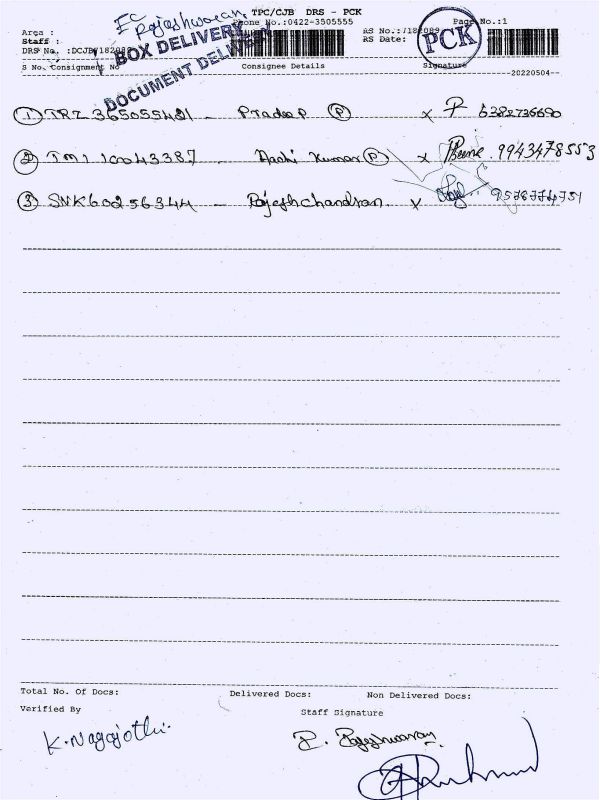 IC
Rajeshwaran
TPC/CJB DRS - PCK
Phone No.:0422-3505555
Page No.:1
Area :
Staff :
DRS No. :DCJB/182089
RS No.:/182089
RS Date:
PCK
BOX DELIVERY
DOCUMENT DELIVERY
S No. Consignment No
Consignee Details
Signature
--20220504--
① TRZ 365055481 - Pradeep Ⓟ x P 6382736690
② TMI 10043387 - Aachi Kumar Ⓟ x 9943478553
③ SNK60256344 - Rajeshchandran x 9578774751
Total No. Of Docs:
Delivered Docs:
Non Delivered Docs:
Verified By
Staff Signature
K. Nagajothi.
P. Rajeshwaran